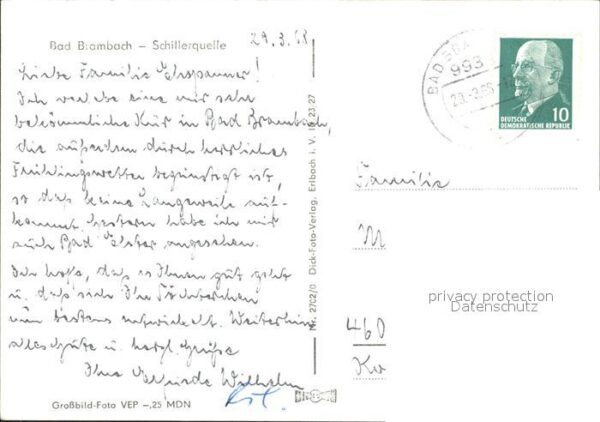 Bad Brambach – Schillerquelle
29.3.68
Liebe Familie
Ich verlebe eine mir sehr
bekömmliche Kur in Bad Brambach,
die außerdem durch herrliches
Frühlingswetter begünstigt ist,
so daß keine Langeweile auf-
kommt. Gestern habe ich mir
auch Bad Elster angesehen.
Ich hoffe, daß es Ihnen gut geht
u. daß sich Ihr Töchterchen
zum besten entwickelt. Weiterhin
alles Gute u. herzl. Grüße
Ihre Wilhelm
Großbild-Foto VEP –,25 MDN
Nr. 2702/0 Dick-Foto-Verlag, Erlbach i. V. 23 27
BAD BRA
993
DEUTSCHE
DEMOKRATISCHE REPUBLIK
10
Familie
M
460
privacy protection
Datenschutz